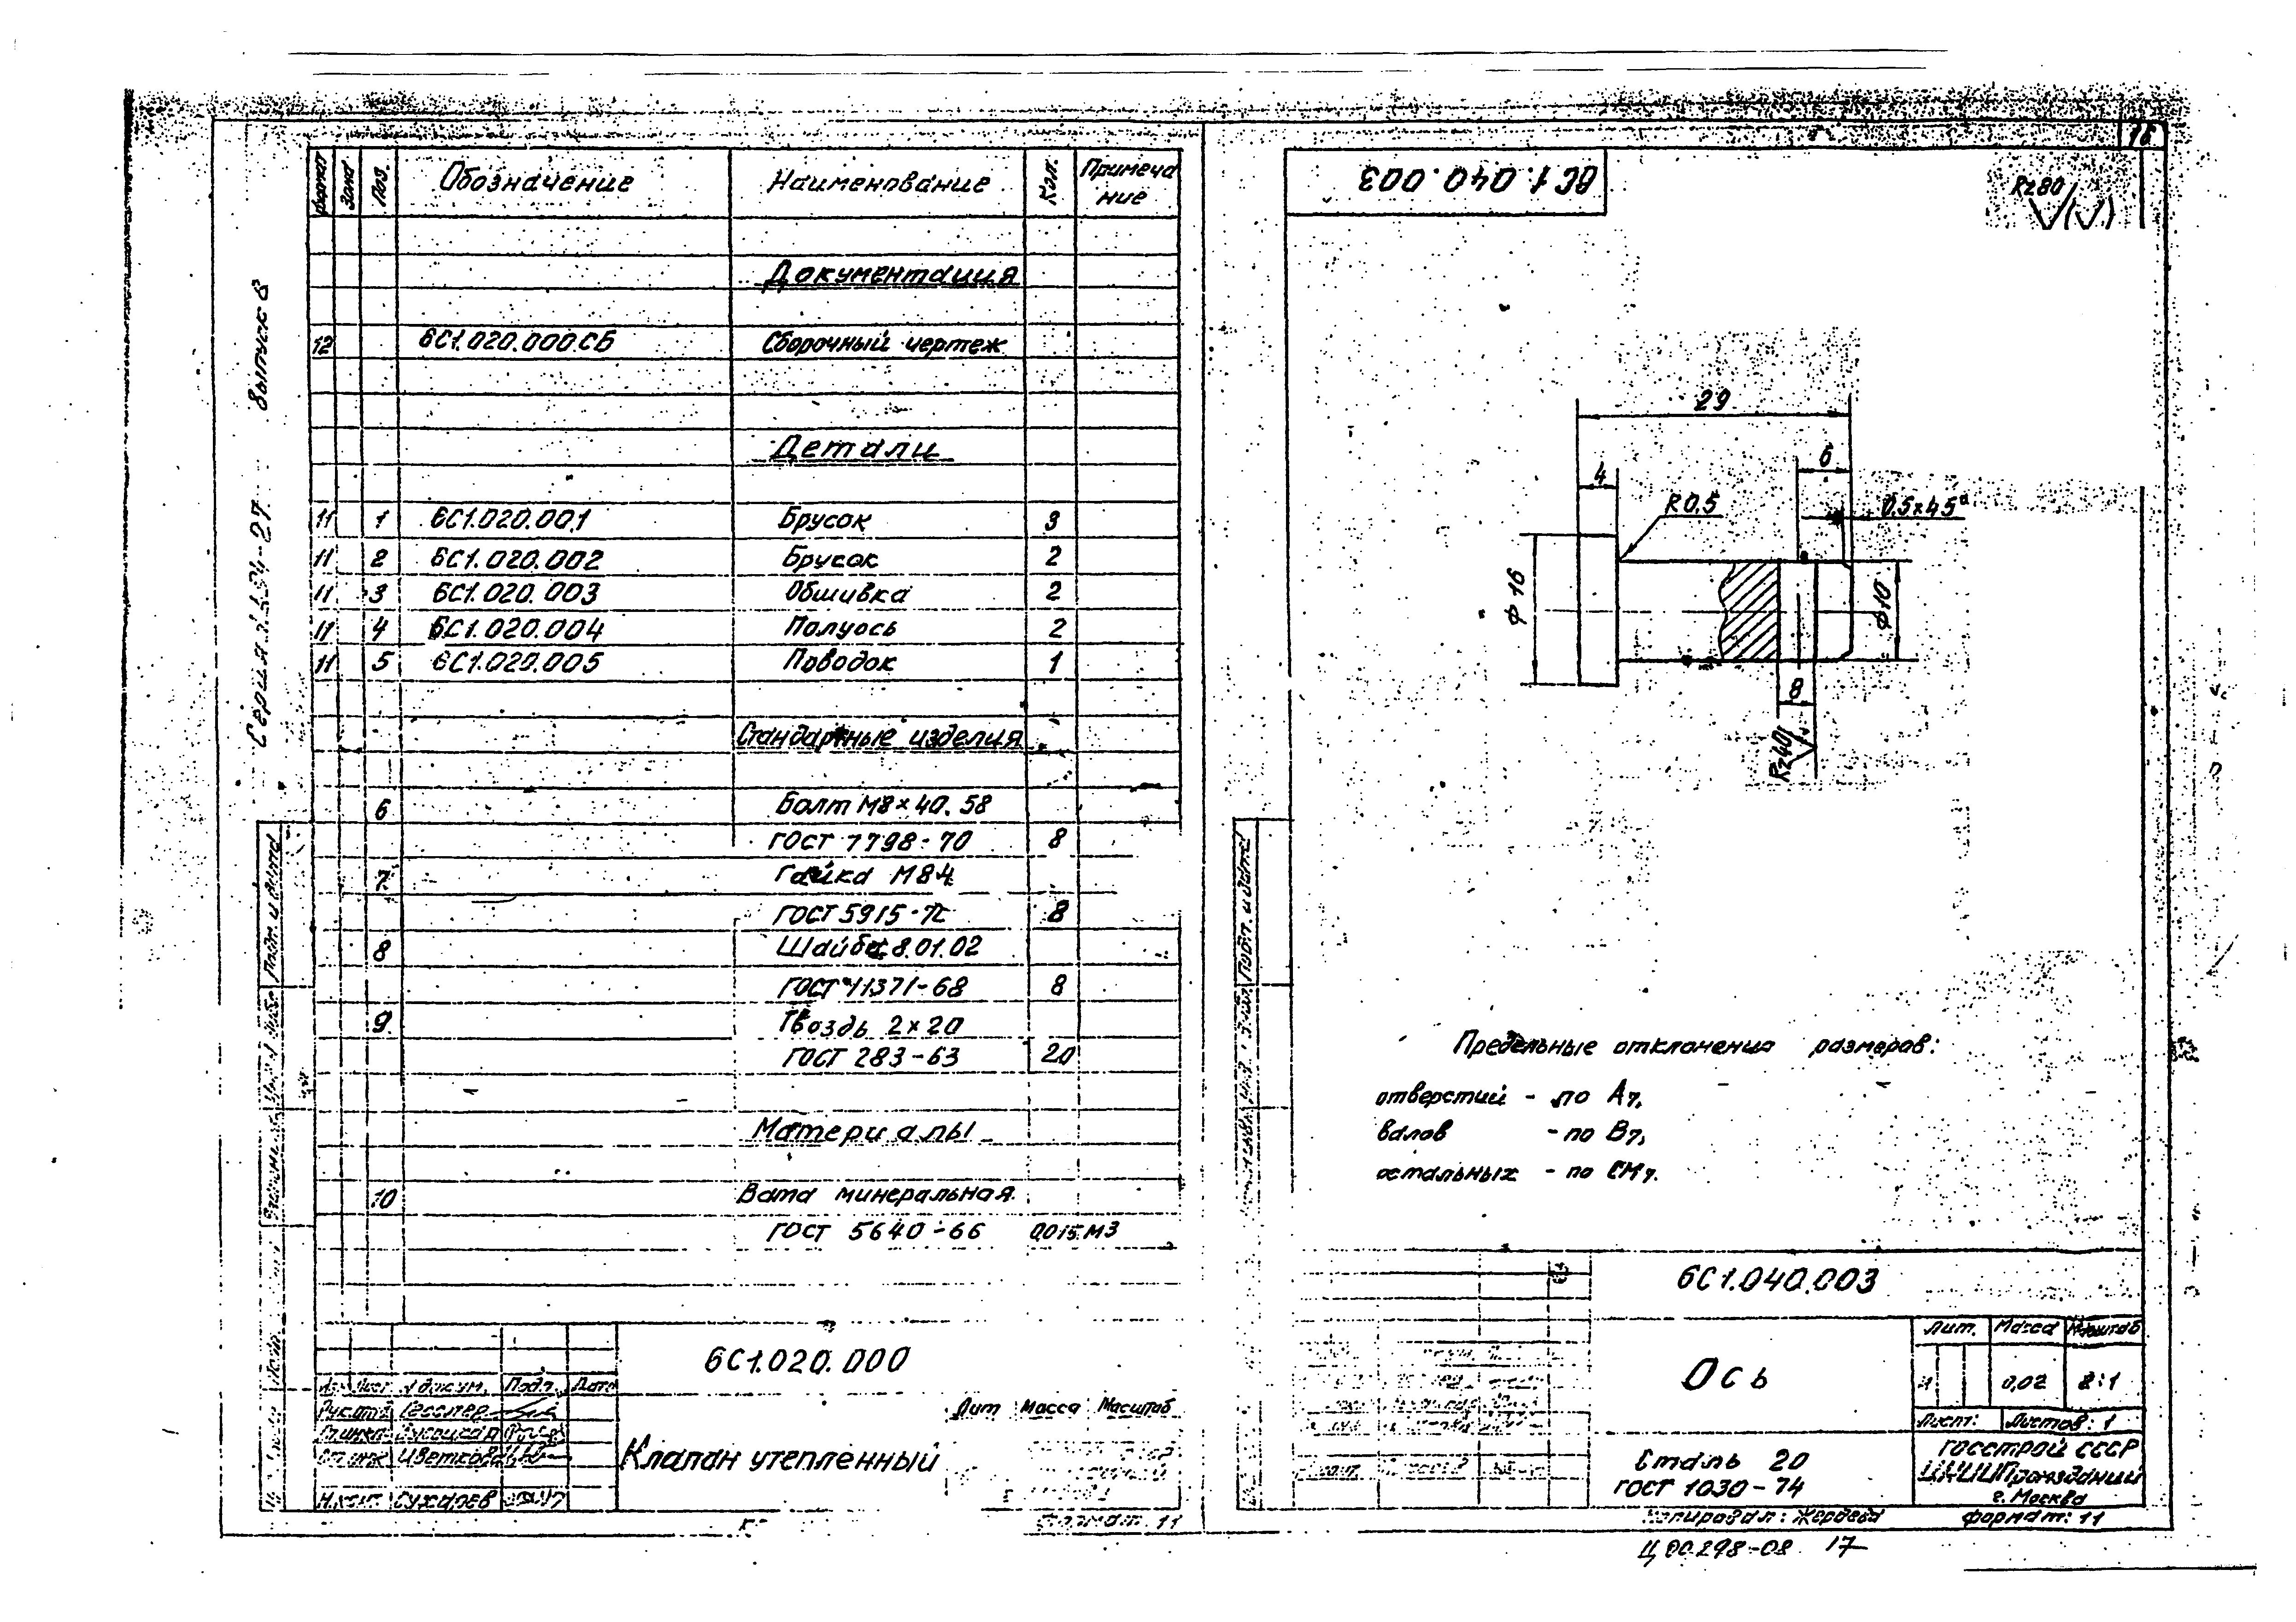 16
Выпуск 6
формат Зона Поз. Обозначение Наименование Кол. Примечание
Документация
12 6С1.020.000.СБ Сборочный чертеж
Детали
11 1 6С1.020.001 Брусок 3
11 2 6С1.020.002 Брусок 2
11 3 6С1.020.003 Обшивка 2
11 4 6С1.020.004 Полуось 2
11 5 6С1.020.005 Поводок 1
Стандартные изделия
6 Болт М8×40.58
ГОСТ 7798-70 8
7 Гайка М8.4
ГОСТ 5915-70 8
8 Шайба 8.01.02
ГОСТ 11371-68 8
9 Гвоздь 2×20
ГОСТ 283-63 20
Материалы
10 Вата минеральная
ГОСТ 5640-66 0,015 М3
6С1.020.000
Лист № докум. Подп. Дата
Лит Масса Масштаб
Клапан утепленный
Н.конт. Сухарев
Формат 11
Подп. и дата
6С1.040.003
Rz80 (√)
29
6
4
R0,5
0,5×45°
ф16
ф10
8
Rz40
Подп. и дата
Предельные отклонения размеров:
отверстий - по А7,
валов - по В7,
остальных - по СМ7.
6С1.040.003
Лит. Масса Масштаб
Ось
0,02 2:1
Лист: Листов: 1
Сталь 20
ГОСТ 1030-74
Госстрой СССР
ЦНИИПромзданий
г. Москва
Копировал: Жердева формат: 11
Ц 00298-08 17